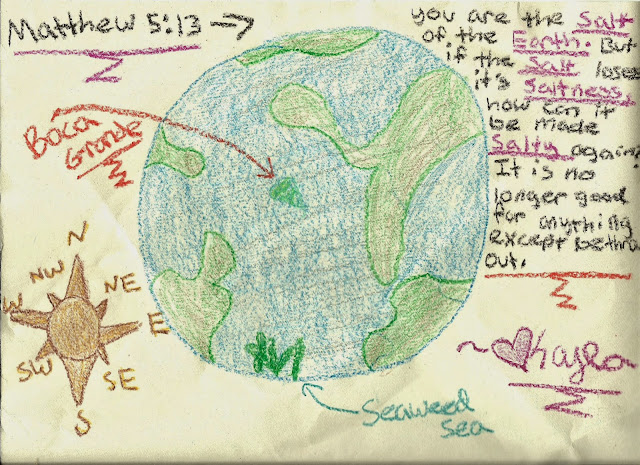 Matthew 5:13 →
you are the Salt
of the Earth. But
if the Salt loses
it's Saltness,
how can it
be made
Salty again?
It is no
longer good
for anything
except bethro
out.
Boca
Grande
N
NW
NE
W
E
SW
SE
S
Seaweed
Sea
~ Kayla